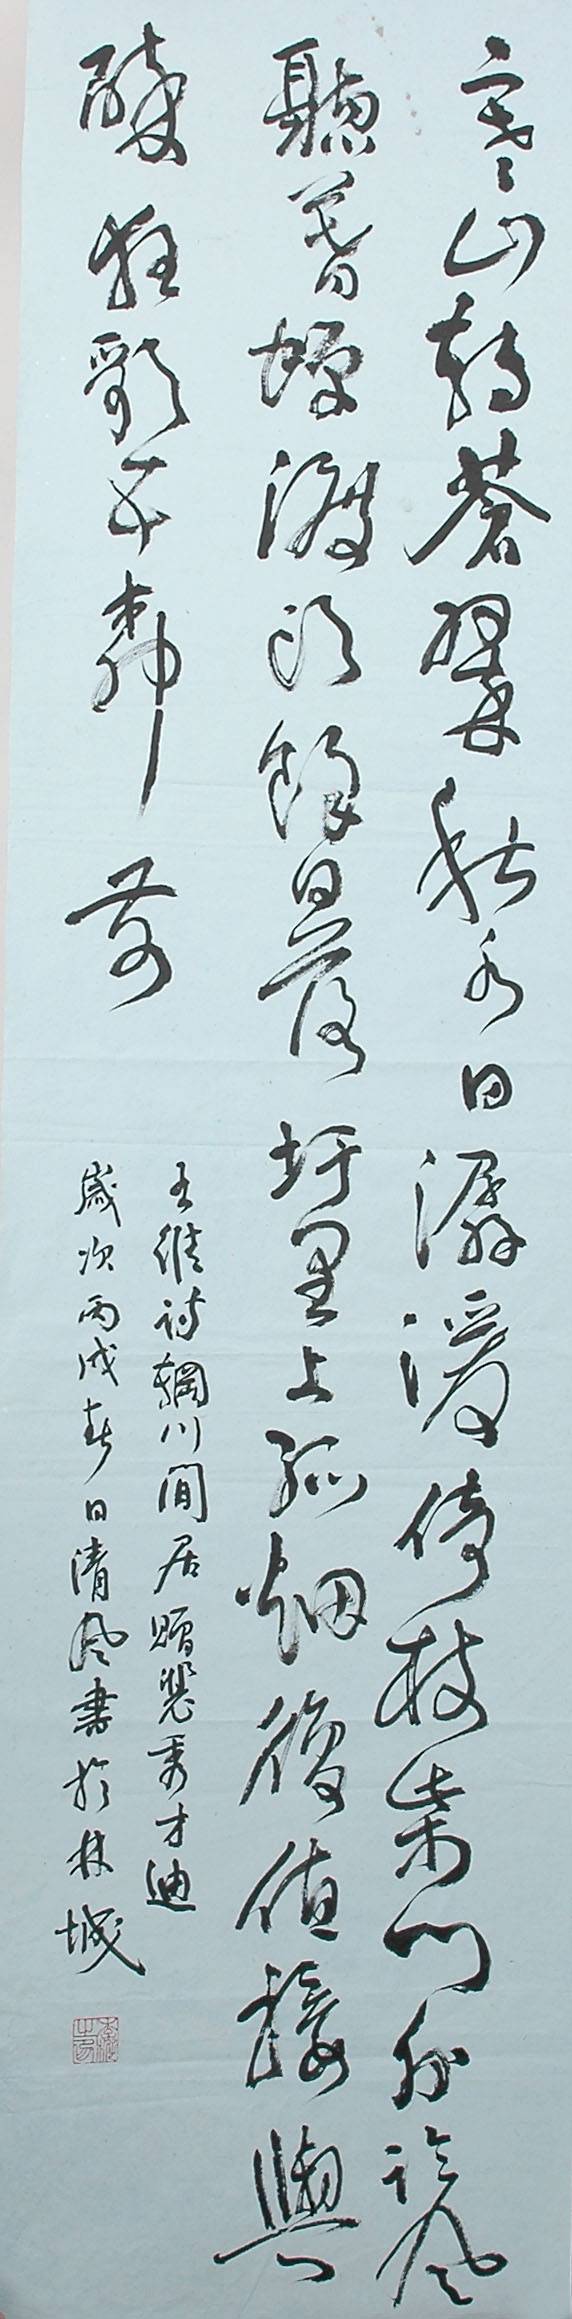 寒山轉蒼翠秋水日潺湲倚杖柴門外臨風
聽暮蟬渡頭餘日落圩里上孤烟復值接輿
醉狂歌五柳前
王維詩輞川閒居贈裴秀才迪
歲次丙戌春日清風書於林城